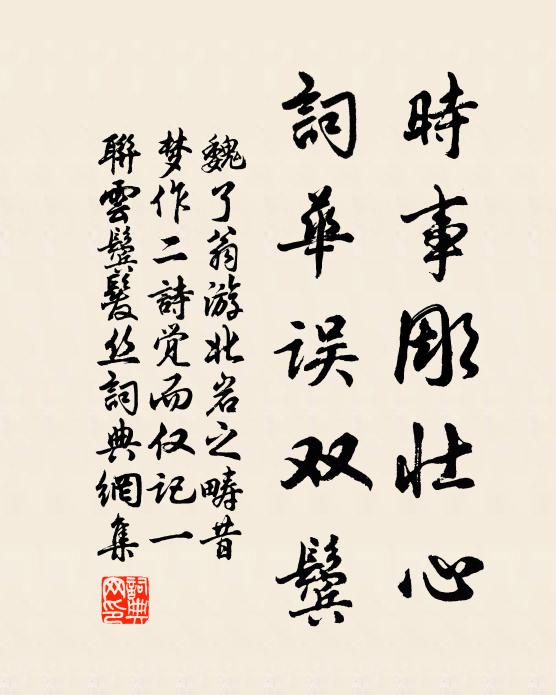 時事彫壮心
詞華误双鬓
魏了翁游北岩之畴昔
梦作二詩觉而仅记一
聯雲鬓髮丝詞典網集
詞典網印